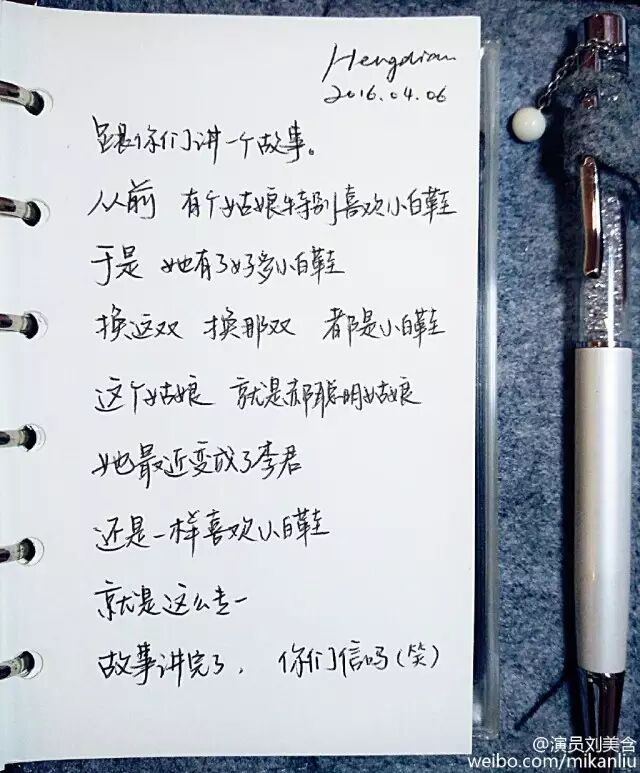 Hengdian
2016.04.06
跟你们讲一个故事。
从前 有个姑娘特别喜欢小白鞋
于是 她有了好多小白鞋
换这双 换那双 都是小白鞋
这个姑娘 就是郝聪明姑娘
她最近变成了李君
还是一样喜欢小白鞋
就是这么专一
故事讲完了, 你们信吗(笑)
@演员刘美含
weibo.com/mikanliu